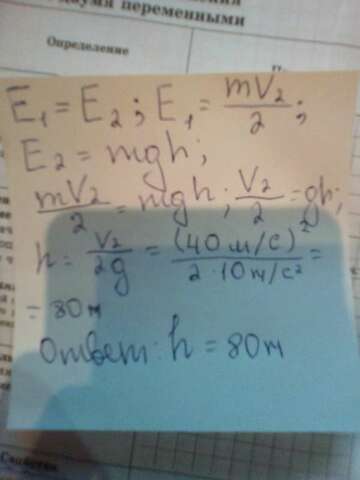 двумя переменными
Определение
E₁ = E₂; E₁ = mV2/2;
E₂ = mgh;
mV2/2 = mgh; V2/2 = gh;
h = V2/2g = (40 м/с)²/2·10 м/с² =
= 80 м
Ответ: h = 80 м
Свойства